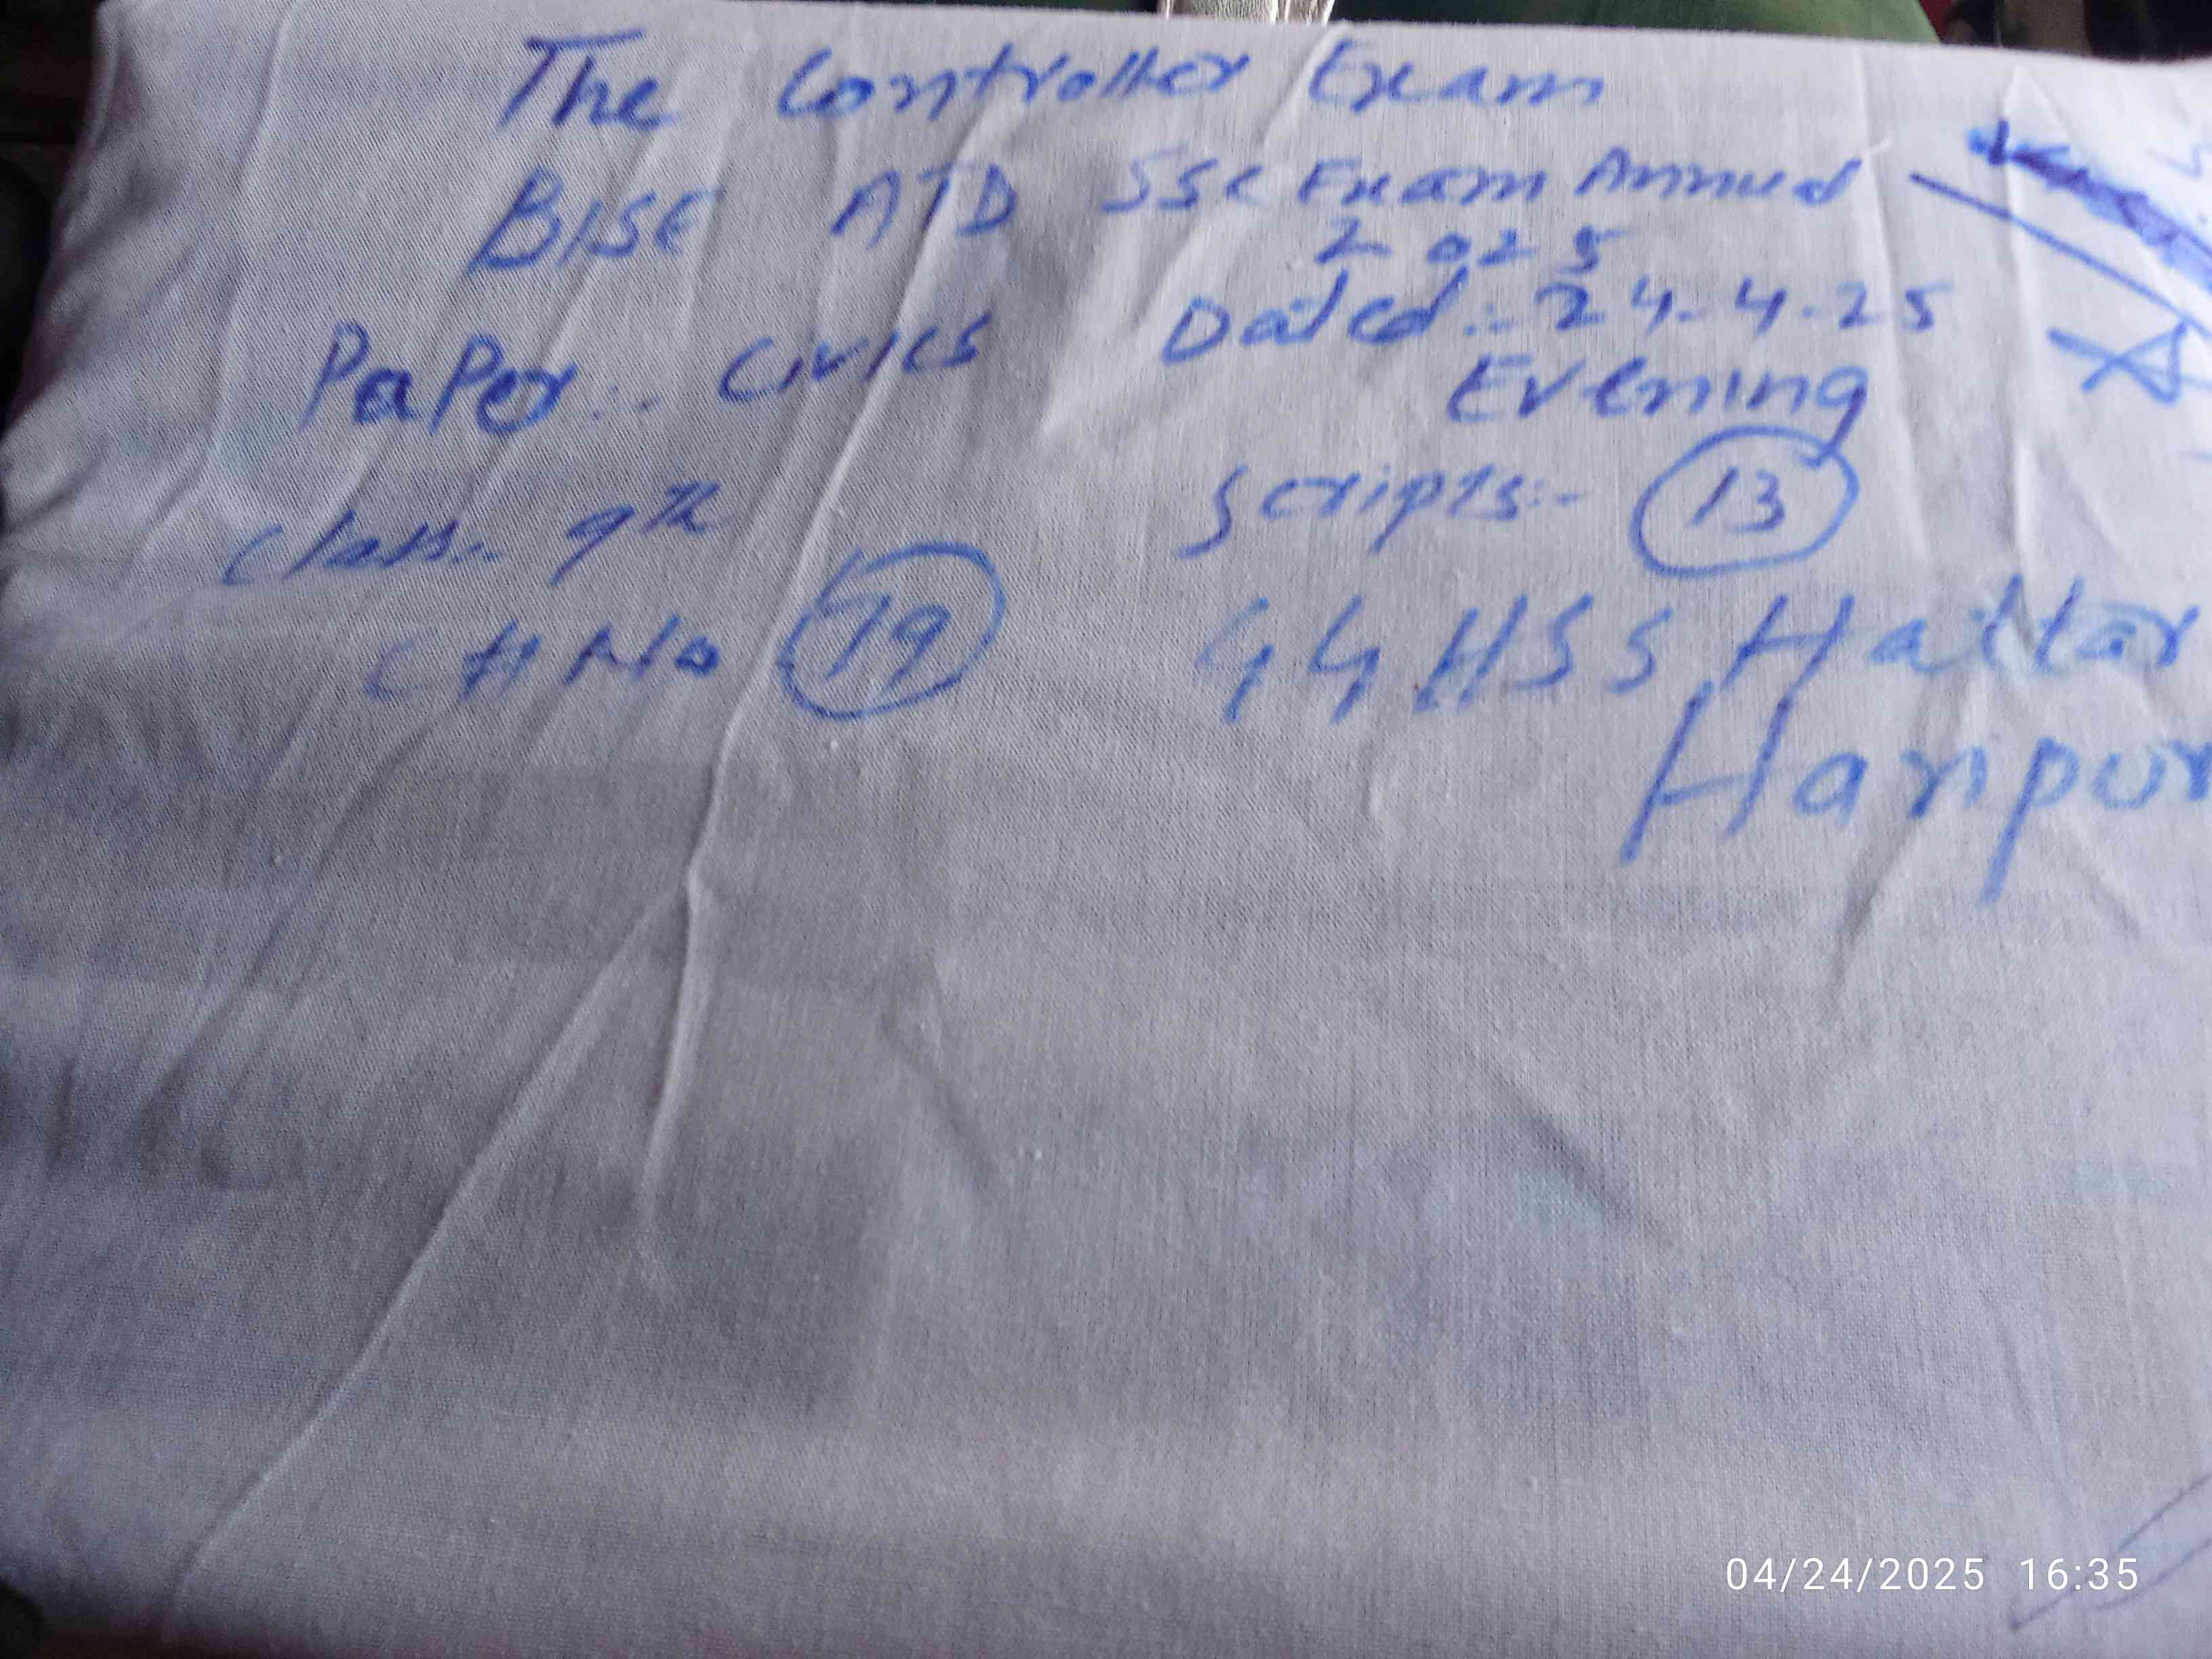 The Controller Exam
BISE ATD SSC Exam Annual
2025
Paper:- Civics Dated:- 24-4-25
Evening
Class:- 9th Scripts:- 13
CH No 79 GGHSS Hattar
Haripur
04/24/2025 16:35